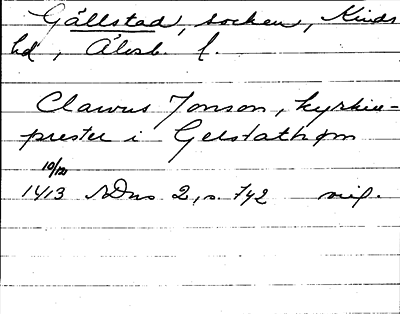 Gällstad, socken, Kinds
hd, Älvsb l.
Clawus Jonson, kyrkie-
prester i Gelstathom
10/12
1413 SDns 2, s. 742 sig.